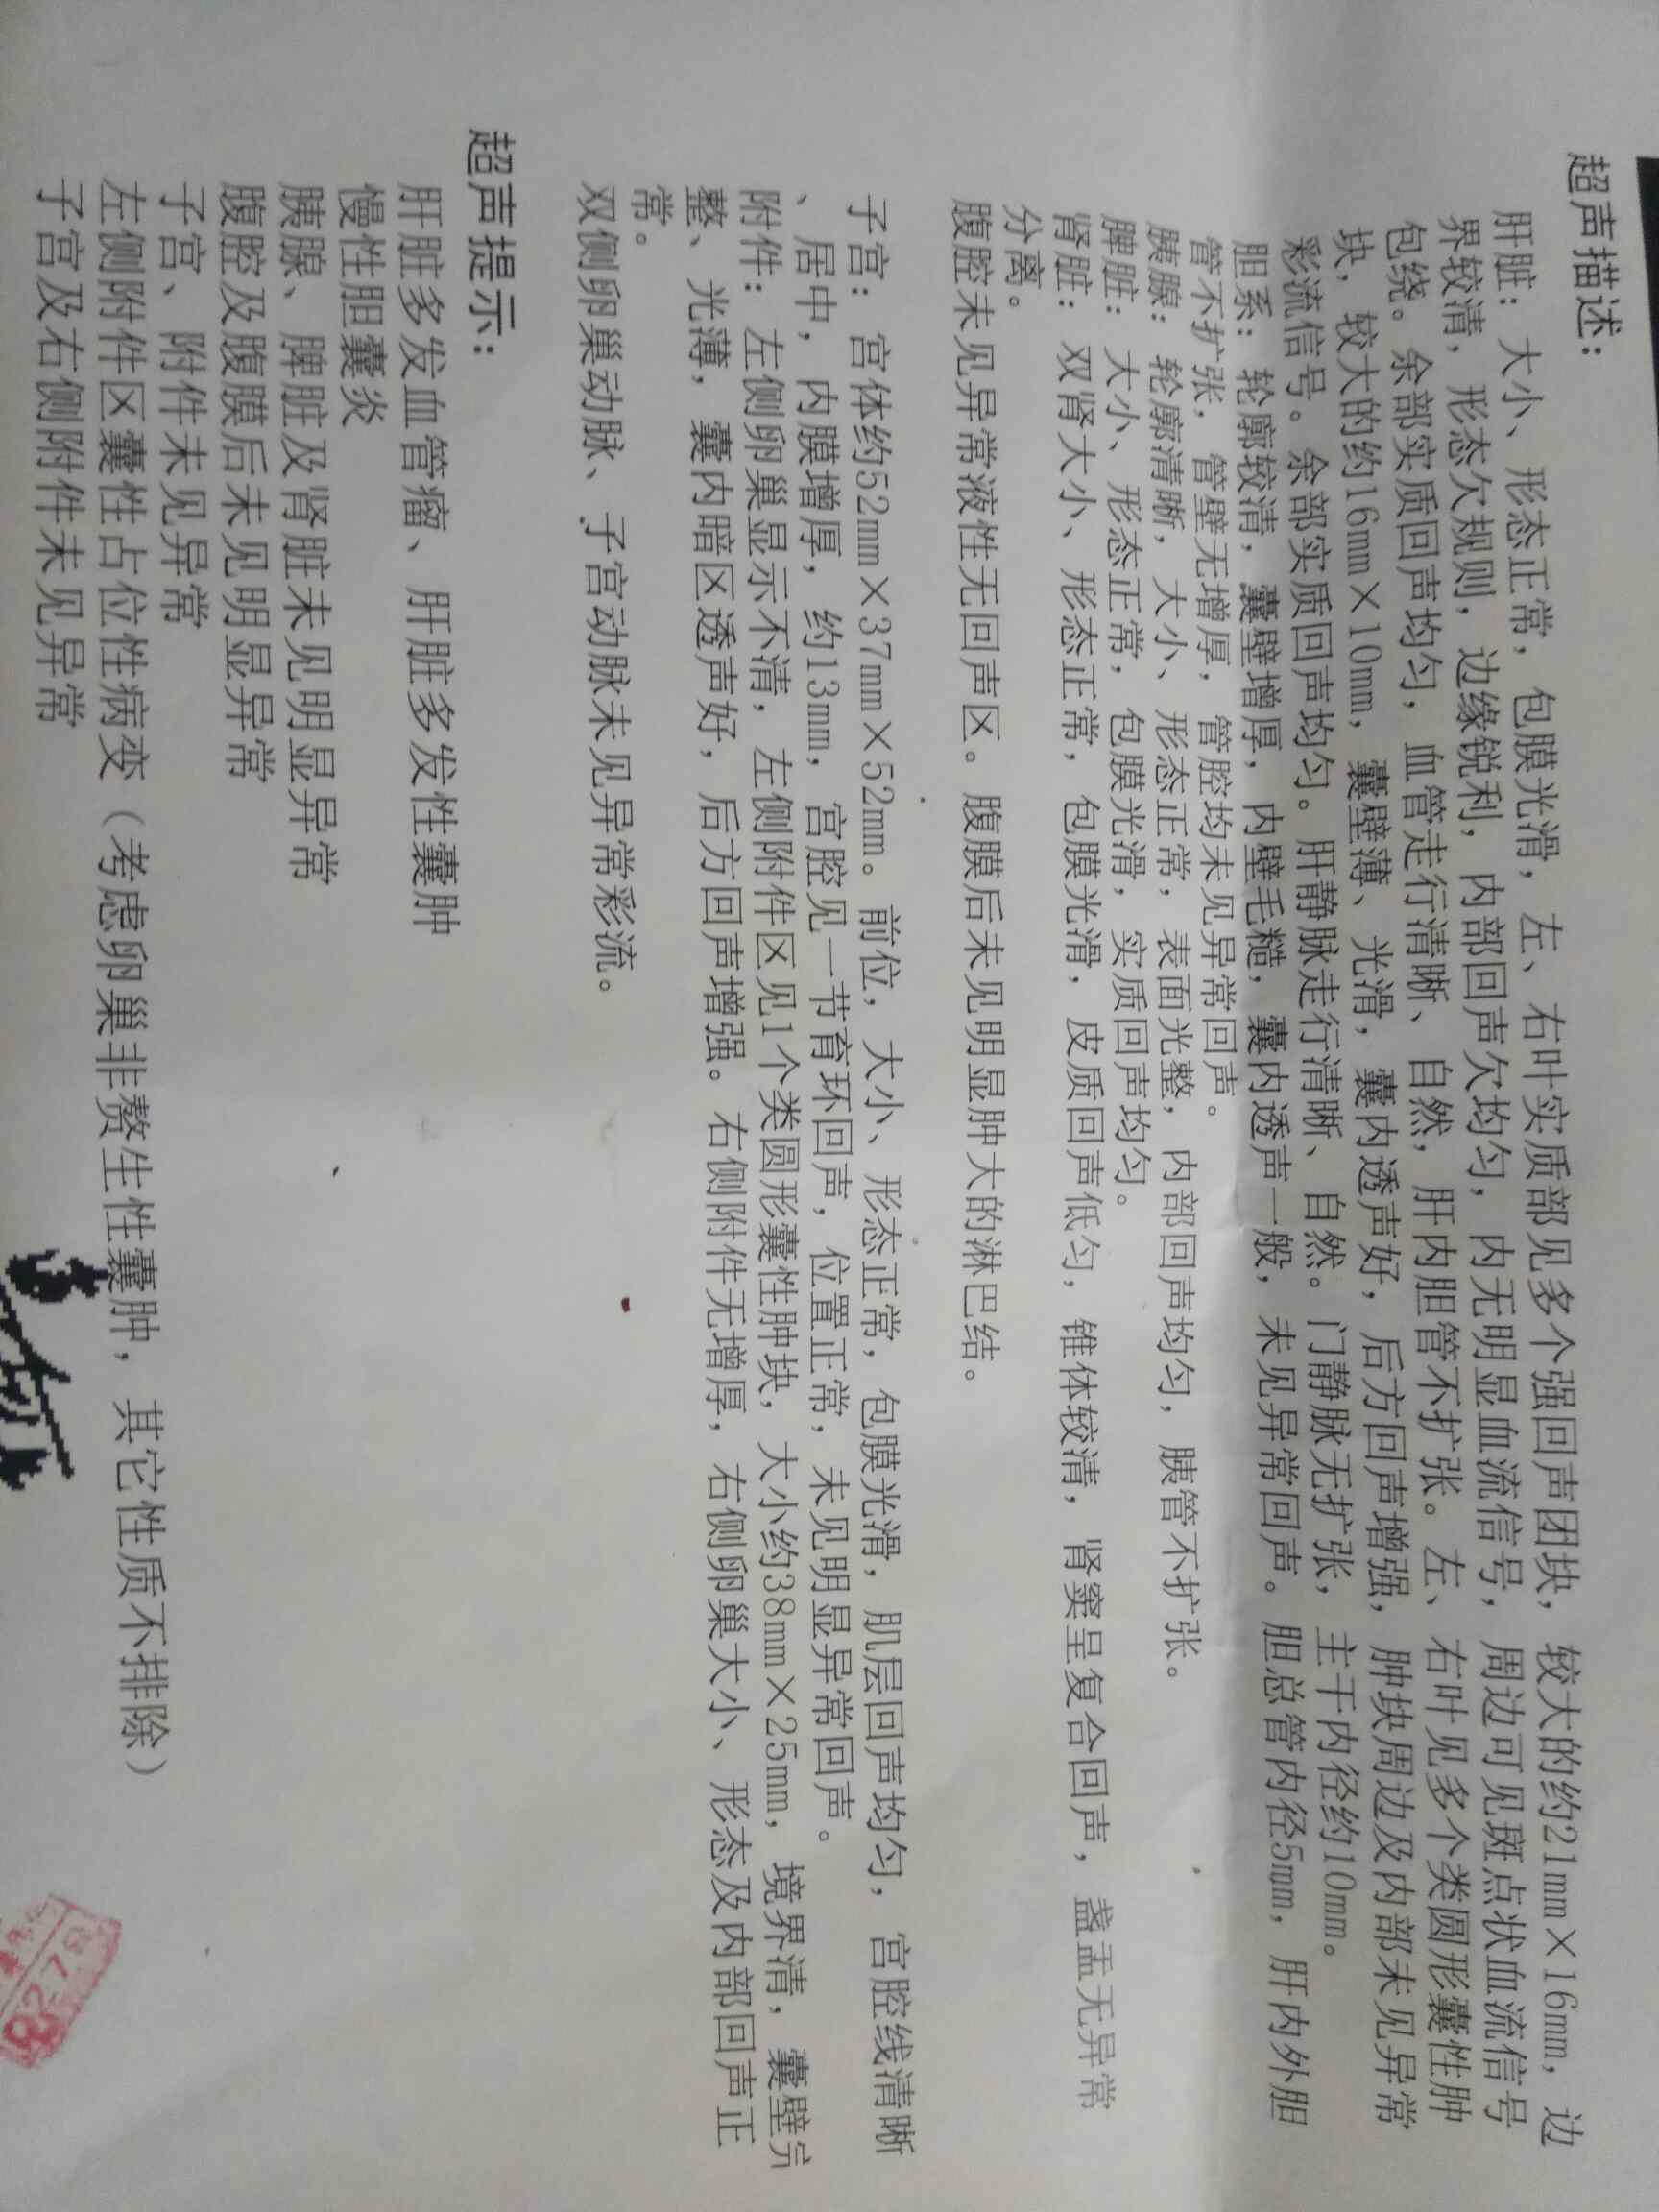 超声描述：
肝脏：大小、形态正常，包膜光滑，左、右叶实质部见多个强回声团块，较大的约21mm×16mm，边
界较清，形态欠规则，边缘锐利，内部回声欠均匀，内无明显血流信号，周边可见斑点状血流信号
包绕。余部实质回声均匀，血管走行清晰、自然，肝内胆管不扩张。左、右叶见多个类圆形囊性肿
块，较大的约16mm×10mm，囊壁薄、光滑，囊内透声好，后方回声增强，肿块周边及内部未见异常
彩流信号。余部实质回声均匀。肝静脉走行清晰、自然。门静脉无扩张，主干内径约10mm。
胆系：轮廓较清，囊壁增厚，内壁毛糙，囊内透声一般，未见异常回声。胆总管内径5mm，肝内外胆
管不扩张，管壁无增厚，管腔均未见异常回声。
胰腺：轮廓清晰，大小、形态正常，表面光整，内部回声均匀，胰管不扩张。
脾脏：大小、形态正常，包膜光滑，实质回声均匀。
肾脏：双肾大小、形态正常，包膜光滑，皮质回声低匀，锥体较清，肾窦呈复合回声，盏盂无异常
分离。
腹腔未见异常液性无回声区。腹膜后未见明显肿大的淋巴结。
子宫：宫体约52mm×37mm×52mm。前位，大小、形态正常，包膜光滑，肌层回声均匀，宫腔线清晰
、居中，内膜增厚，约13mm，宫腔见一节育环回声，位置正常，未见明显异常回声。
附件：左侧卵巢显示不清，左侧附件区见1个类圆形囊性肿块，大小约38mm×25mm，境界清，囊壁完
整、光薄，囊内暗区透声好，后方回声增强。右侧附件无增厚，右侧卵巢大小、形态及内部回声正
常。
双侧卵巢动脉、子宫动脉未见异常彩流。
超声提示：
肝脏多发血管瘤、肝脏多发性囊肿
慢性胆囊炎
胰腺、脾脏及肾脏未见明显异常
腹腔及腹膜后未见明显异常
子宫、附件未见异常
左侧附件区囊性占位性病变（考虑卵巢非赘生性囊肿，其它性质不排除）
子宫及右侧附件未见异常